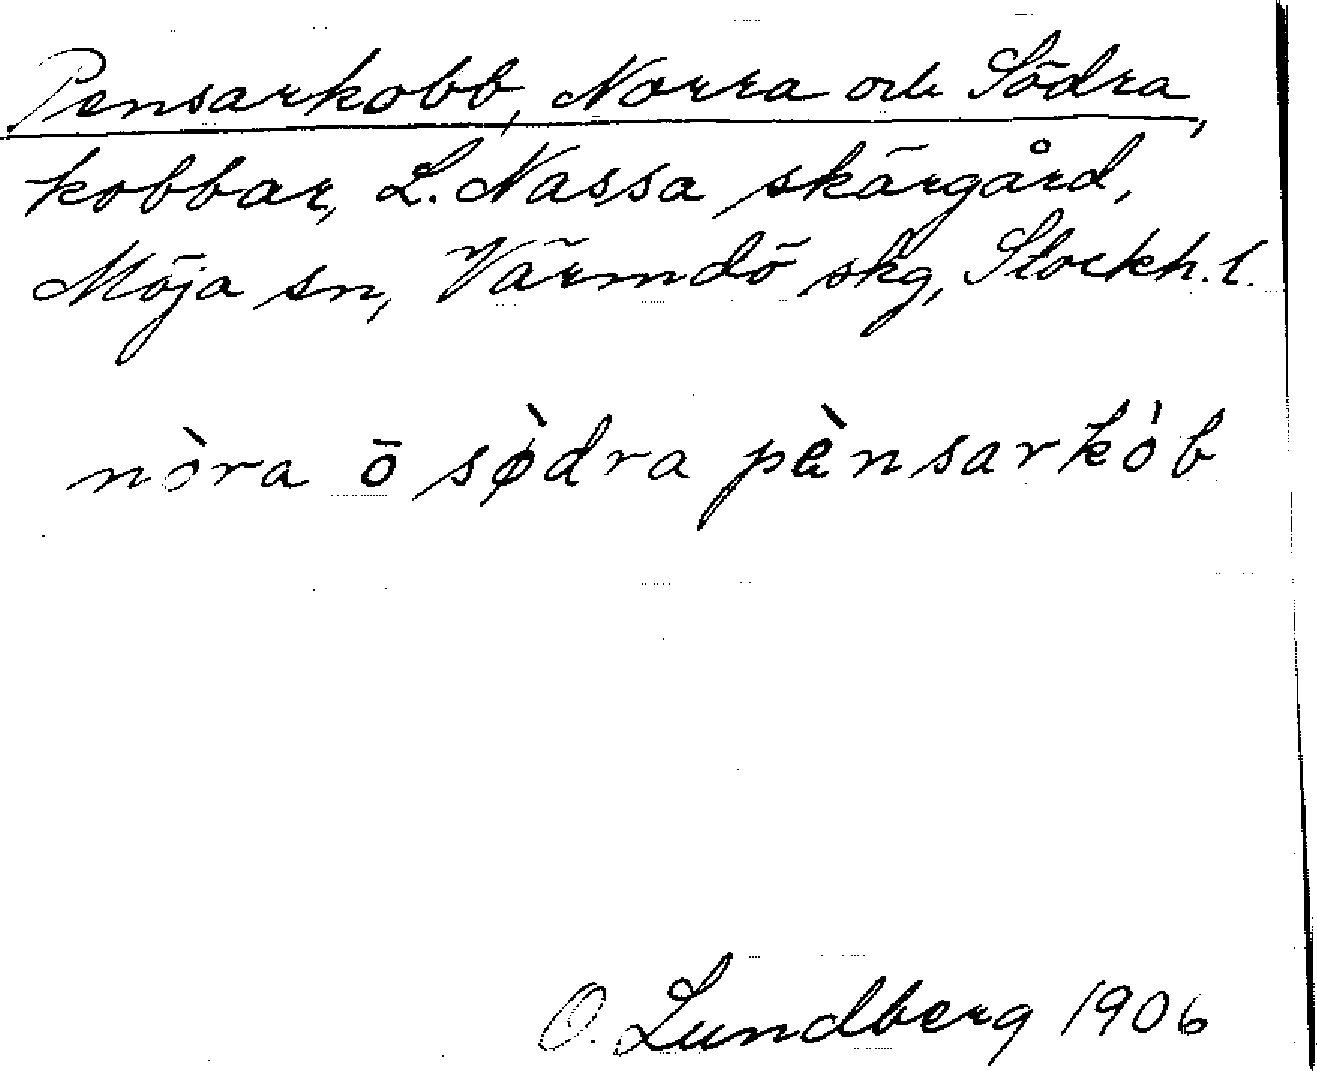 Pensarkobb, Norra och Södra,
kobbar, L. Nassa skärgård,
Möja sn, Värmdö skg, Stockh. l.
nòra ō sø̀dra pènsarkób
O. Lundberg 1906